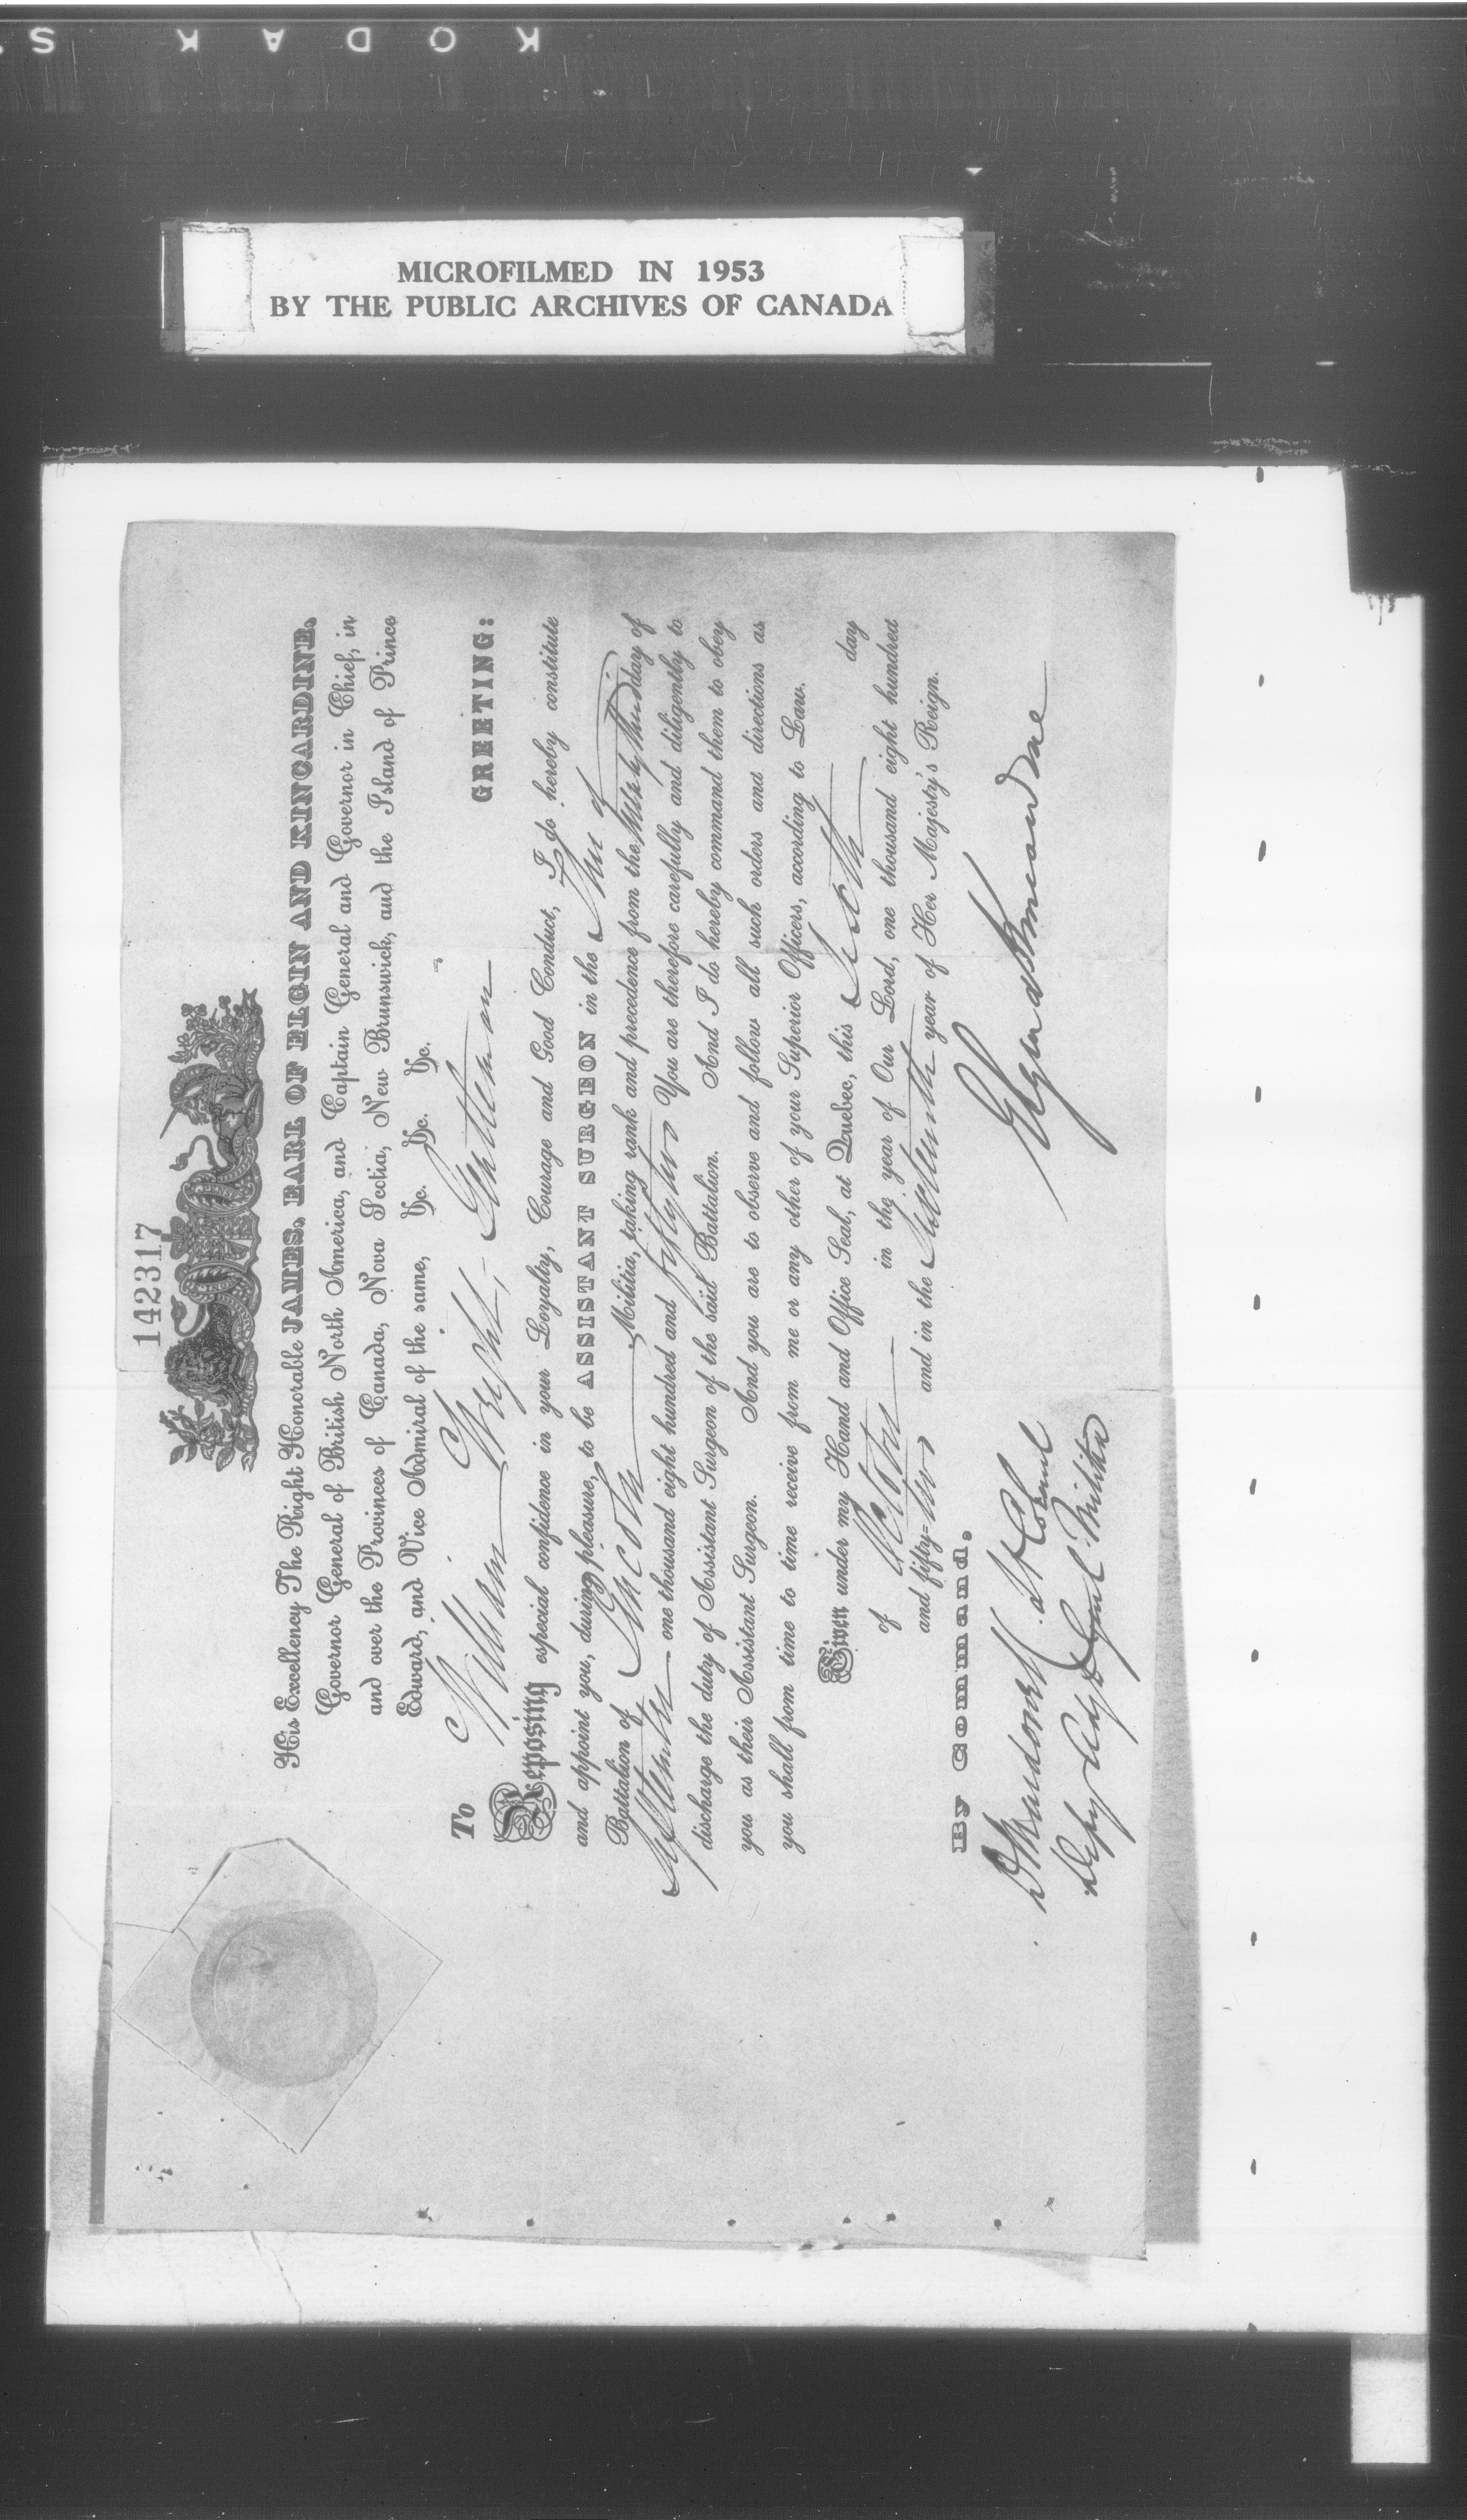 KODAK S
MICROFILMED IN 1953
BY THE PUBLIC ARCHIVES OF CANADA
142317
His Excellency The Right Honorable JAMES, EARL OF ELGIN AND KINCARDINE,
Governor General of British North America, and Captain General and Governor in Chief, in
and over the Provinces of Canada, Nova Scotia, New Brunswick, and the Island of Prince
Edward, and Vice Admiral of the same, &c. &c. &c.
To William Wright, Gentleman GREETING:
Reposing especial confidence in your Loyalty, Courage and Good Conduct, I do hereby constitute
and appoint you, during pleasure, to be ASSISTANT SURGEON in the
Battalion of Simcoe Militia, taking rank and precedence from the twenty third day of
September one thousand eight hundred and fifty two You are therefore carefully and diligently to
discharge the duty of Assistant Surgeon of the said Battalion. And I do hereby command them to obey
you as their Assistant Surgeon. And you are to observe and follow all such orders and directions as
you shall from time to time receive from me or any other of your Superior Officers, according to Law.
Given under my Hand and Office Seal, at Quebec, this Sixth day
of October in the year of Our Lord, one thousand eight hundred
and fifty-two and in the Sixteenth year of Her Majesty's Reign.
Elgin & Kincardine
By Command,
D Macdonell Lt Colonel
Depy Adjt Genl Militia